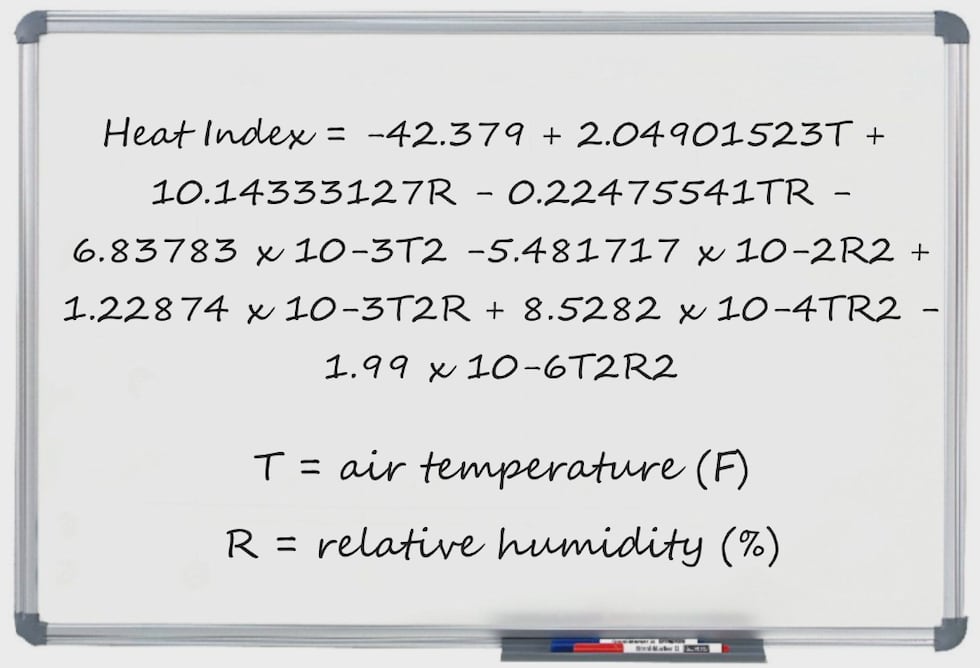 Heat Index = -42.379 + 2.04901523T +
10.14333127R - 0.22475541TR -
6.83783 x 10-3T2 -5.481717 x 10-2R2 +
1.22874 x 10-3T2R + 8.5282 x 10-4TR2 -
1.99 x 10-6T2R2
T = air temperature (F)
R = relative humidity (%)